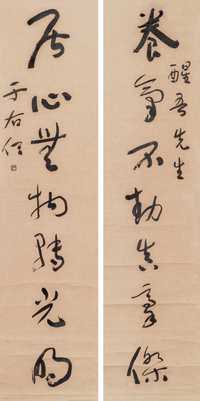 養氣不動真豪傑
醒吾先生
居心無物轉光明
于右任